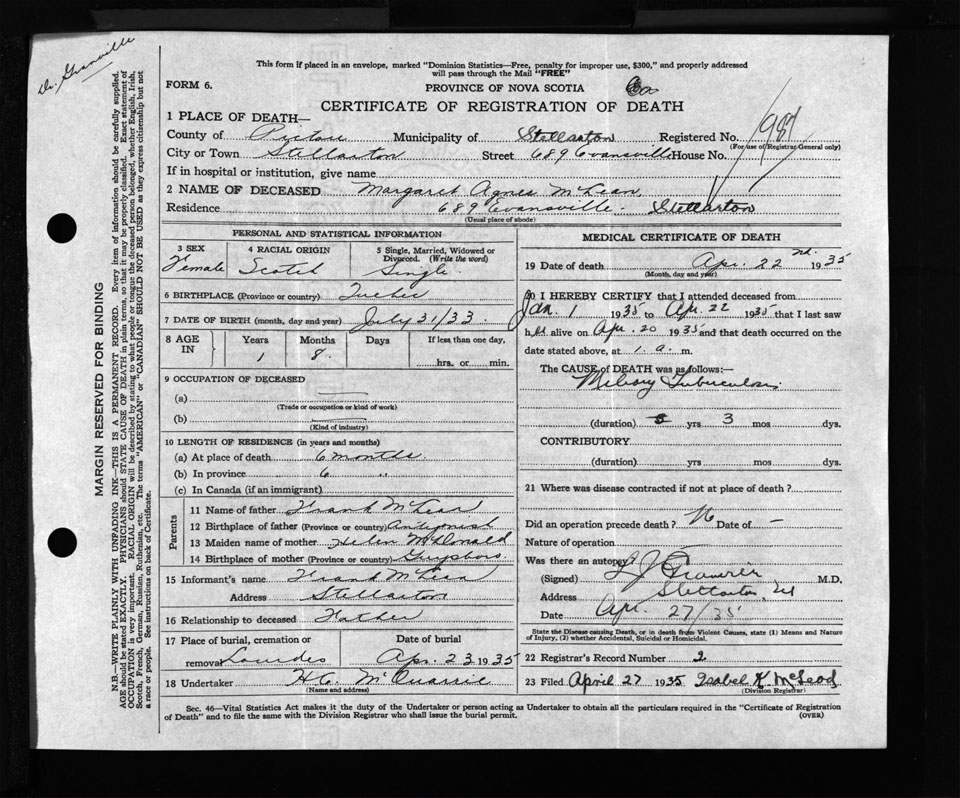 Dr. Granville
This form if placed in an envelope, marked "Dominion Statistics—Free, penalty for improper use, $300," and properly addressed
will pass through the Mail "FREE"
FORM 6.
PROVINCE OF NOVA SCOTIA
CERTIFICATE OF REGISTRATION OF DEATH
1 PLACE OF DEATH—
County of Pictou Municipality of Stellarton Registered No. 981
(For use of Registrar General only)
City or Town Stellarton Street 689 Evansville House No.
If in hospital or institution, give name
2 NAME OF DECEASED Margaret Agnes McLean
Residence 689 Evansville. Stellarton
(Usual place of abode)
PERSONAL AND STATISTICAL INFORMATION
3 SEX 4 RACIAL ORIGIN 5 Single, Married, Widowed or
Divorced. (Write the word)
Female Scotch Single.
6 BIRTHPLACE (Province or country) Quebec
7 DATE OF BIRTH (month, day and year) July 31/33.
8 AGE IN Years Months Days If less than one day,
1 8. hrs. or min.
9 OCCUPATION OF DECEASED
(a) —
(Trade or occupation or kind of work)
(b)
(Kind of industry)
10 LENGTH OF RESIDENCE (in years and months)
(a) At place of death 6 months
(b) In province 6 "
(c) In Canada (if an immigrant)
Parents
11 Name of father Frank McLean
12 Birthplace of father (Province or country) Antigonish
13 Maiden name of mother Helen McDonald
14 Birthplace of mother (Province or country) Guysboro
15 Informant's name Frank McLean
Address Stellarton
16 Relationship to deceased Father
17 Place of burial, cremation or Date of burial
removal Lourdes Apr. 23 1935
18 Undertaker H.C. McQuarrie
(Name and address)
MEDICAL CERTIFICATE OF DEATH
19 Date of death Apr. 22 nd. 1935
(Month, day and year)
20 I HEREBY CERTIFY that I attended deceased from
Jan. 1 1935 to Apr. 22 1935 that I last saw
h alive on Apr. 20 1935 and that death occurred on the
date stated above, at 1 a. m.
The CAUSE OF DEATH was as follows:—
Miliary Tuberculosis
(duration) yrs 3 mos dys.
CONTRIBUTORY
(duration) yrs mos dys.
21 Where was disease contracted if not at place of death?
Did an operation precede death? No Date of —
Nature of operation
Was there an autopsy?
(Signed) M.D.
Address Stellarton,
Date Apr. 27/35
State the Disease causing Death, or in death from Violent Causes, state (1) Means and Nature
of Injury, (2) whether Accidental, Suicidal or Homicidal.
22 Registrar's Record Number 2
23 Filed April 27 1935 Isabel K McLeod
(Division Registrar)
Sec. 46—Vital Statistics Act makes it the duty of the Undertaker or person acting as Undertaker to obtain all the particulars required in the "Certificate of Registration
of Death" and to file the same with the Division Registrar who shall issue the burial permit.
(OVER)
MARGIN RESERVED FOR BINDING
N.B.—WRITE PLAINLY WITH UNFADING INK—THIS IS A PERMANENT RECORD. Every item of information should be carefully supplied.
AGE should be stated EXACTLY. PHYSICIANS should STATE CAUSE OF DEATH in plain terms, so that it may be properly classified. Exact statement of
OCCUPATION is very important. RACIAL ORIGIN will be described by stating to what people or tongue the deceased person belonged, whether English, Irish,
Scotch, French, German, Russian, Ruthenian, etc. The terms "AMERICAN" or "CANADIAN" SHOULD NOT BE USED as they express citizenship but not
a race or people. See instructions on back of Certificate.